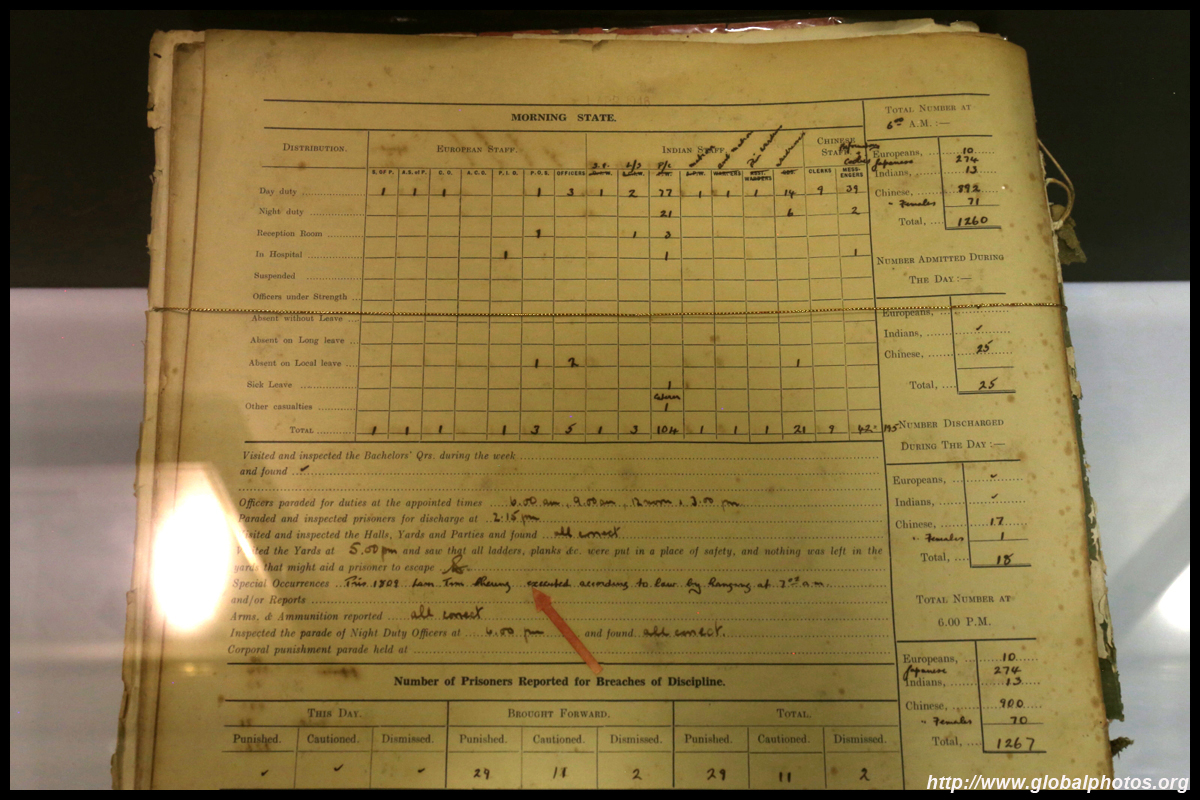 MORNING STATE.
DISTRIBUTION. EUROPEAN STAFF. INDIAN STAFF. CHINESE STAFF.
S. OF P. A.S. of P. C. O. A.C.E. P. I. O. P. O. S. OFFICERS CLERKS MESSENGERS
Day duty 1 1 1 1 3 1 2 77 1 1 1 14 9 39
Night duty 21 6 2
Reception Room 1 1 3
In Hospital 1 1 1
Suspended
Officers under Strength
Absent without Leave
Absent on Long leave
Absent on Local leave 1 2 1
Sick Leave 1
Other casualties 1
TOTAL 1 1 1 1 3 5 1 3 104 1 1 1 21 9 42 195
Visited and inspected the Bachelors' Qrs. during the week
and found ✓
Officers paraded for duties at the appointed times 6.00 am, 9.00 am, 12 noon, 3.00 pm
Paraded and inspected prisoners for discharge at 2.15 pm
Visited and inspected the Halls, Yards and Parties and found all correct
Visited the Yards at 5.00 pm and saw that all ladders, planks &c. were put in a place of safety, and nothing was left in the
yards that might aid a prisoner to escape
Special Occurrences Pris 1809 Lam Tim executed according to law by hanging at 7 00 a.m.
and/or Reports
Arms, & Ammunition reported all correct
Inspected the parade of Night Duty Officers at 6.00 pm and found all correct.
Corporal punishment parade held at
Number of Prisoners Reported for Breaches of Discipline.
THIS DAY. BROUGHT FORWARD. TOTAL.
Punished. Cautioned. Dismissed. Punished. Cautioned. Dismissed. Punished. Cautioned. Dismissed.
✓ ✓ ✓ 29 11 2 29 11 2
TOTAL NUMBER AT
6 00 A.M. :—
Europeans, 10
Japanese 274
Indians, 13
Chinese, 892
" Females 71
Total, 1260
NUMBER ADMITTED DURING
THE DAY :—
Europeans,
Indians, ✓
Chinese, 25
Total, 25
NUMBER DISCHARGED
DURING THE DAY :—
Europeans, ✓
Indians, ✓
Chinese, 17
" Females 1
Total, 18
TOTAL NUMBER AT
6.00 P.M.
Europeans, 10
Japanese 274
Indians, 13
Chinese, 900
" Females 70
Total, 1267
http://www.globalphotos.org